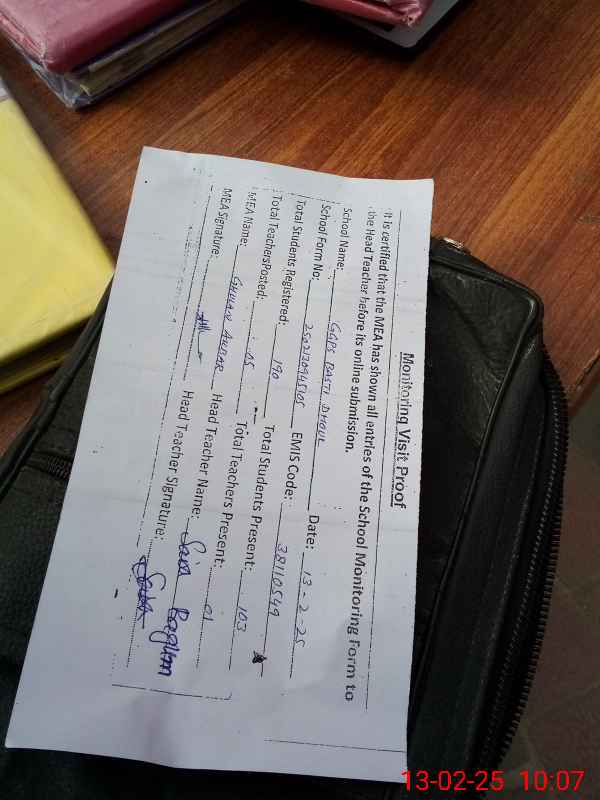 Monitoring Visit Proof
It is certified that the MEA has shown all entries of the School Monitoring Form to
the Head Teacher before its online submission.
School Name: GGPS BASTI DHOUL Date: 13-2-25
School Form No: EMIS Code: 38110549
Total Students Registered: 190 Total Students Present: 103
Total Teachers Posted: 05 Total Teachers Present: 01
MEA Name: Head Teacher Name: Saira
MEA Signature: Head Teacher Signature:
13-02-25 10:07